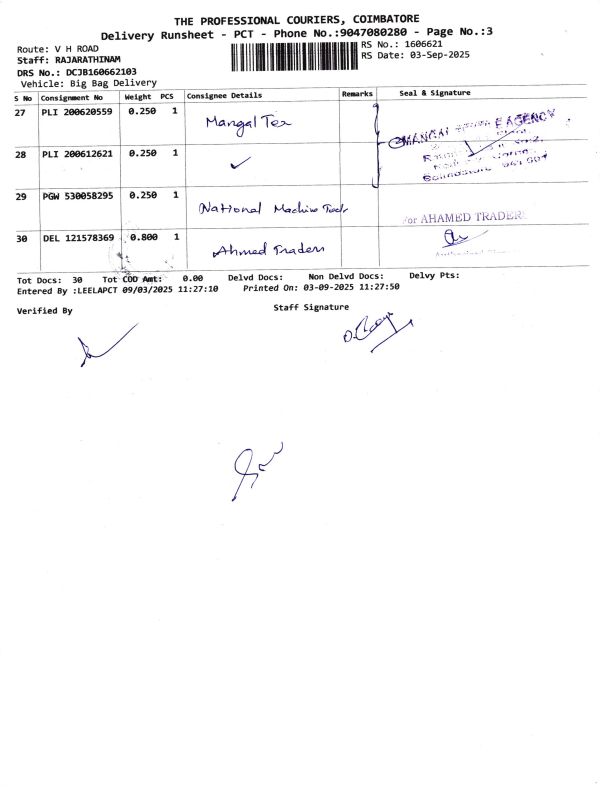 THE PROFESSIONAL COURIERS, COIMBATORE
Delivery Runsheet - PCT - Phone No.:9047080280 - Page No.:3
Route: V H ROAD
RS No.: 1606621
Staff: RAJARATHINAM
RS Date: 03-Sep-2025
DRS No.: DCJB160662103
Vehicle: Big Bag Delivery
S No Consignment No Weight PCS Consignee Details Remarks Seal & Signature
27 PLI 200620559 0.250 1 Mangal Tex
MANGAL AGENCY
28 PLI 200612621 0.250 1 ✓
29 PGW 530058295 0.250 1 National Machine Tools
For AHAMED TRADERS
30 DEL 121578369 0.800 1 Ahmed Traders
Tot Docs: 30 Tot COD Amt: 0.00 Delvd Docs: Non Delvd Docs: Delvy Pts:
Entered By :LEELAPCT 09/03/2025 11:27:10 Printed On: 03-09-2025 11:27:50
Verified By Staff Signature